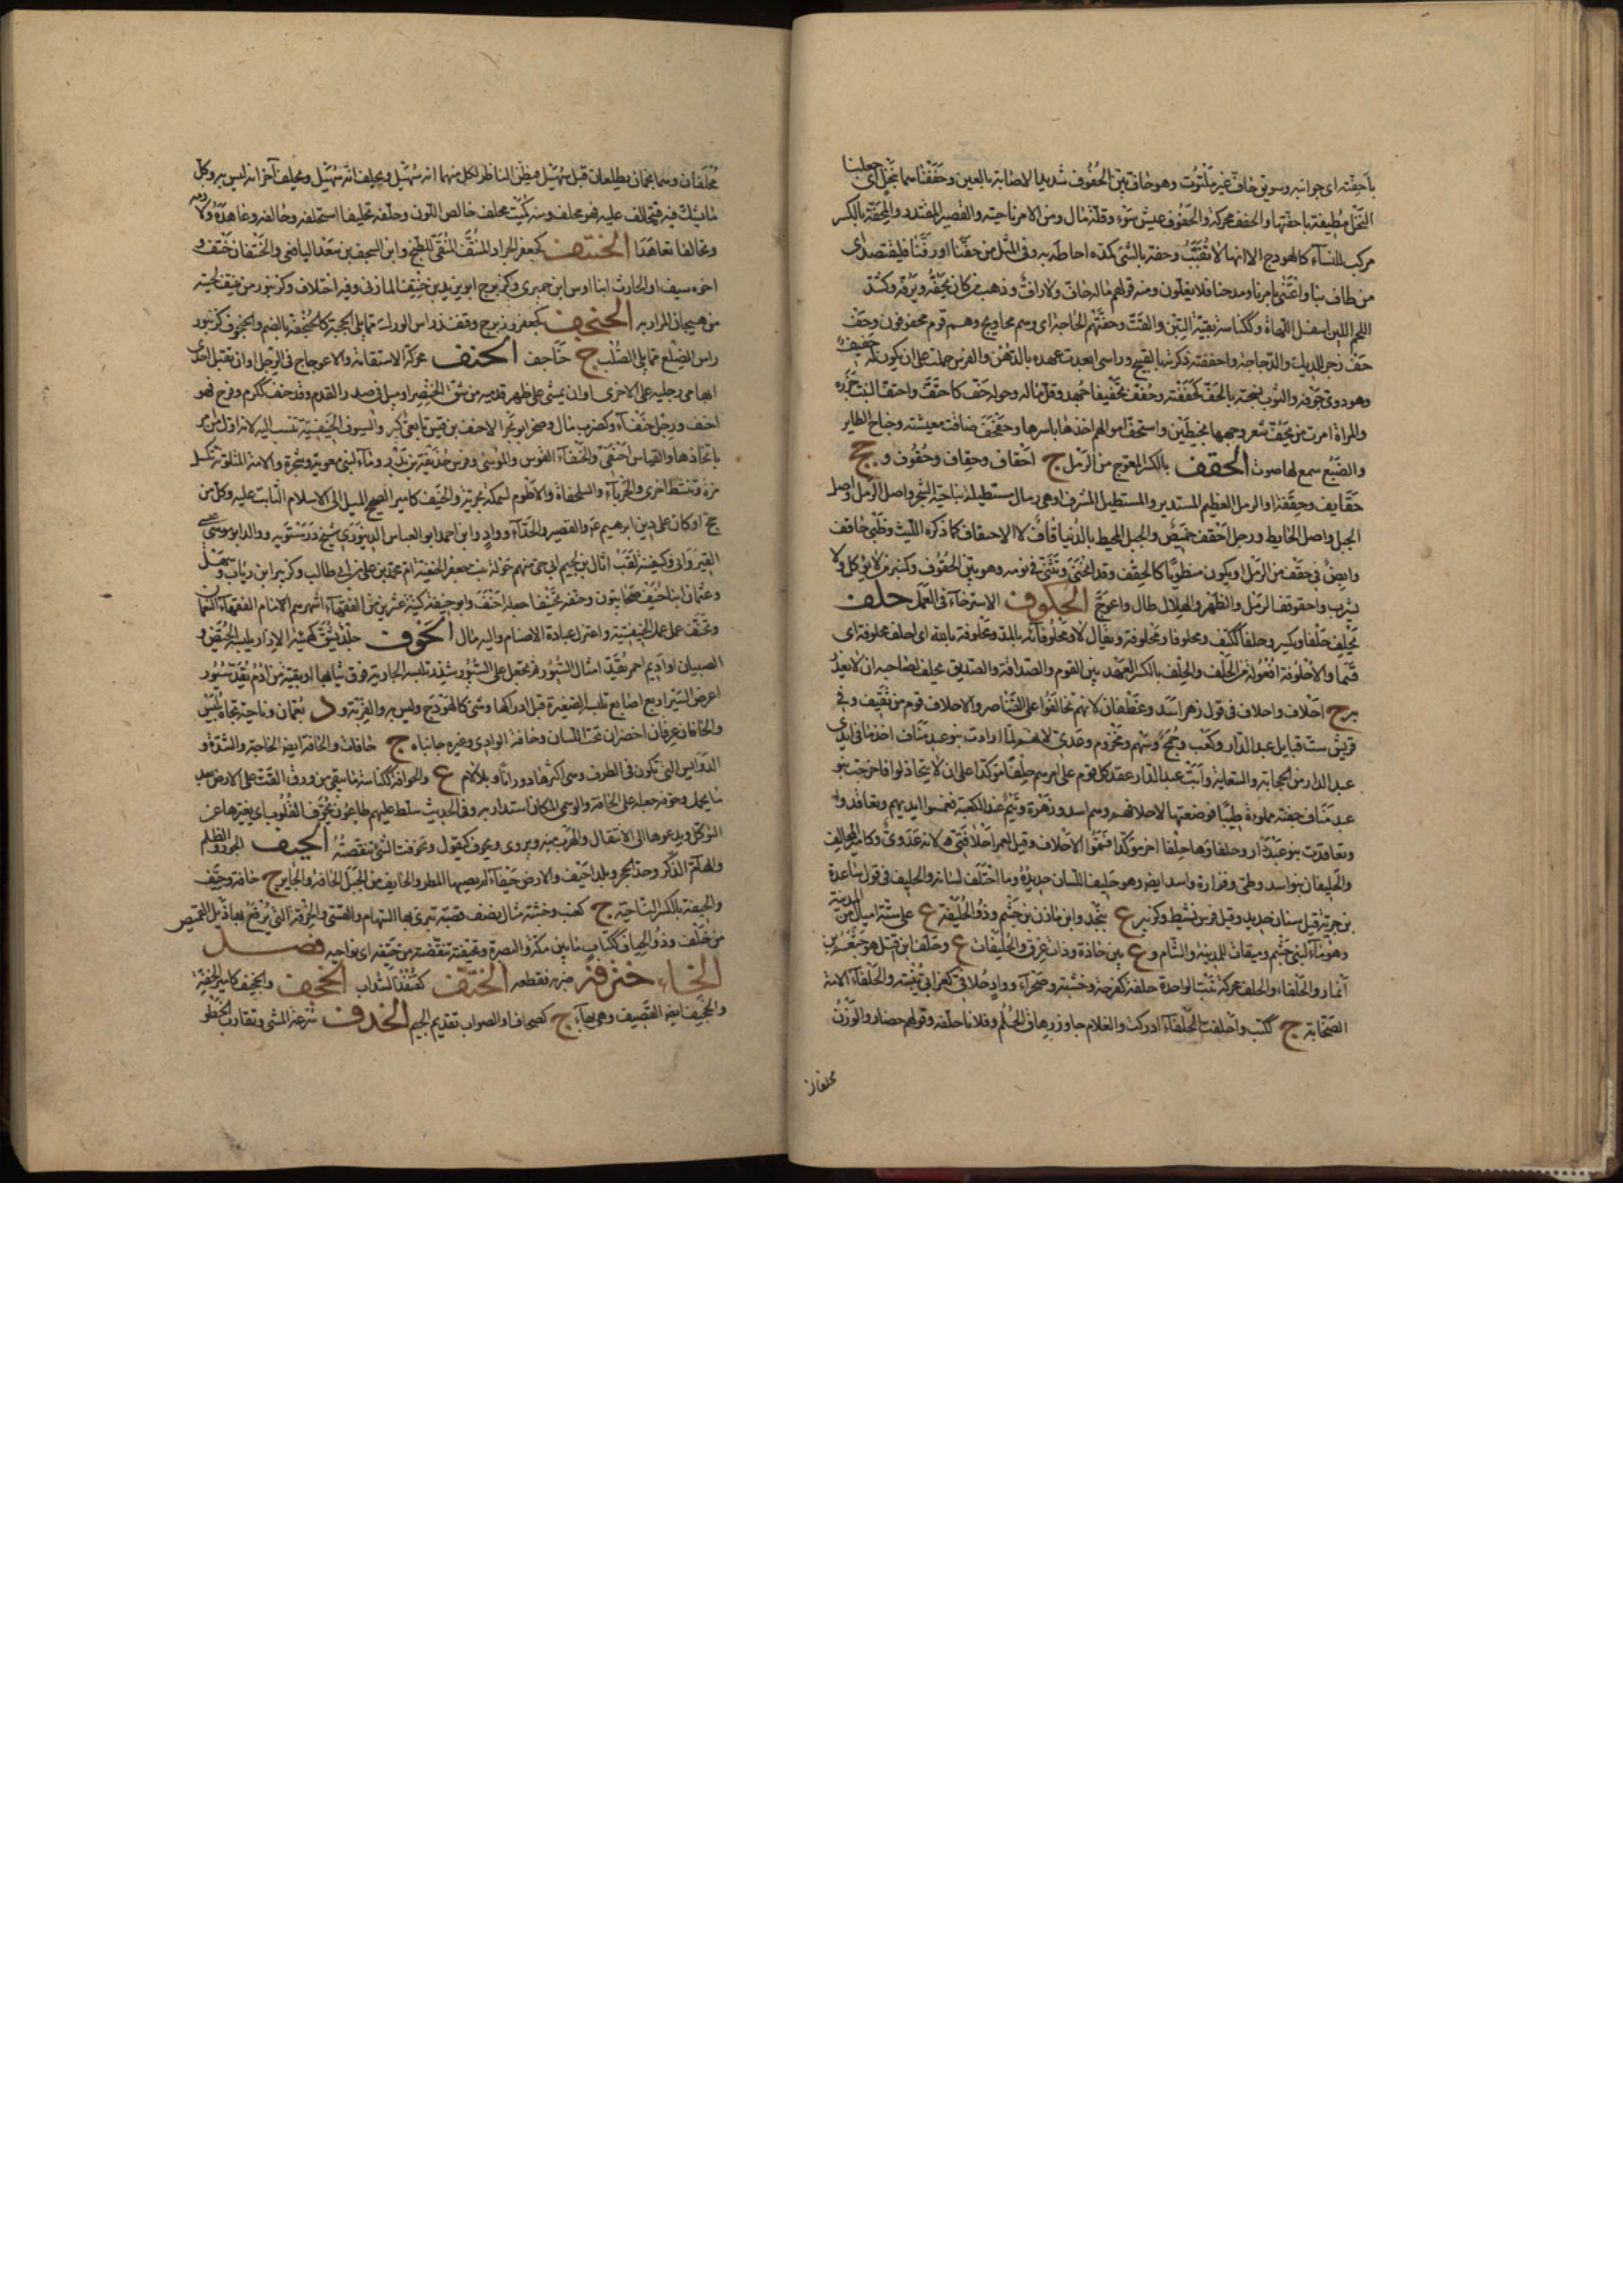 باحفته اى جوانبه وسويق حاف غير ملتوت وهو حاف بين الحفوف شديد الاصابة بالعين وحففناهما بنخل اى جعلنا
النخل مطيفة باحفتها والحفف محركة والحفوف عيش سوء وقلة مال ومن الامر ناحيته والقصير المقتدر والمحفة بالكسر
مركب للنساء كالهودج الا انها لا تقبب وحفه بالشئ كمده احاط به وفى المثل من حفنا او رفنا فليقتصد اى
من طاف بنا واعتنى بامرنا ومدحنا فلا يغلون ومنه قولهم ماله حاف ولا راف وذهب من كان يحفه ويرفه وكشداد
اللحم اللين اسفل اللهاة وككناسة بقية التبن والقت وحفتهم الحاجة اى وهم محاويج وهم قوم محفوفون وحف
حف زجر للديك والدجاجة واحففته ذكرته بالقبيح وراسى ابعدت عهده بالدهن والفرس حملته على ان يكون له حفيف
وهو دوى جوفه والثوب نسجته بالحف كحففته وحفف تحفيفا جهد وقل ماله وحوله حف كاحتف واحتف النبت جزه
والمراة امرت من يحف شعر وجهها بخيطين واستحف اموالهم اخذها باسرها وحفحف ضاقت معيشته وجناح الطاير
والضبع سمع لها صوت الحقف بالكسر المعوج من الرمل ج احقاف وحقاف وحقوف و جج
حقايف وحقفة او الرمل العظيم المستدير والمستطيل المشرف او هى رمال مستطيلة بناحية الشحر واصل الرمل واصل
الجبل واصل الحايط ورجل احقف خميص والجبل المحيط بالدنيا قاف لا الاحقاف كما ذكره الليث وظبى حاقف
رابض فى حقف من الرمل او يكون منطويا كالحقف وقد انحنى وتثنى فى نومه وهو بين الحقوف وكمنبر من لا يؤكل ولا
يشرب واحقوقف الرمل والظهر والهلال طال واعوج الحكوف الاسترخاء فى العمل حلف
يحلف حلفا ويكسر وحلفا ككتف ومحلوفا ومحلوفة ويقال لا ومحلوفائه بالمد ومحلوفة بالله اى احلف محلوفة اى
قسما والاحلوفة افعولة من الحلف والحلف بالكسر العهد بين القوم والصداقة والصديق يحلف لصاحبه ان لا يغدر
به ج احلاف واحلاف فى قول زهير اسد وغطفان لانهم تحالفوا على التناصر والاحلاف قوم من ثقيف وفى
قريش ست قبايل عبد الدار وكعب وجمح وسهم ومخزوم وعدى لانهم لما ارادت بنو عبد مناف اخذ ما فى ايدى
عبد الدار من الحجابة والسقاية وابت عبد الدار عقد كل قوم على امرهم حلفا مؤكدا على ان لا يتخاذلوا فاخرجت بنو
عبد مناف جفنة مملوءة طيبا فوضعتها لاحلافهم وهم اسد وزهرة وتيم عند الكعبة فغمسوا ايديهم وتعاقدوا
وتعاقدت بنو عبد الدار وحلفاؤها حلفا اخر مؤكدا فسموا الاحلاف وقيل لعمر احلافى لانه عدوى وكامير المحالف
والحليفان بنو اسد وطى وفزارة واسد ايضا وهو حليف اللسان حديده وما احلف لسانه والحليف فى قول ساعدة
بن جوية قيل سنان حديد وقيل فرس نشيط وكزبير ع بنجد وابن مازن بن جشم وذو الحليفة ع على ستة اميال من المدينة
وهو ماء لبنى جشم وميقات للمدينة والشام و ع بين حاذة وذات عرق والحليفات ع وحلف ابن افتل هو خثعم بن
انمار والحلفاء والحلف محركة نبت الواحدة حلفة كفرحة وخشبة وصحراء وواد حلافى كصحارى ينبته والحلفاء الامة
الصخابة ج ككتب واحلفت الحلفاء ادركت والغلام جاوز رهاق الحلم وفلانا حلفه وقولهم حضار والوزن
محلفان
محلفان وهما نجمان يطلعان قبل سهيل فيظن الناظر لكل منهما انه سهيل ويحلف انه سهيل ويحلف آخر انه ليس به وكل
ما يشك فيه فيتحالف عليه فهو محلف ومنه كميت محلف خالص اللون وحلفه تحليفا استحلفه وحالفه وعاهده ولازمه
وتحالفا تعاهدا الحنتف كجعفر الجراد المنتف المنقى للطبخ وابن السجف بن سعد اليامنى والحنتفان حنتف و
اخوه سيف او الحارث ابنا اوس ابن حميرى وكزبرج ابو يزيد بن حنتف المازنى وفيه اختلاف وكزنبور من ينتف لحيته
من هيجان المرار به الحنجف كجعفر وزبرج وقنفذ راس الورك مما يلى الحجبة كالحنجفة بالضم والحنجوف كزنبور
راس الضلع مما يلى الصلب ج حناجف الحنف محركة الاستقامة والاعوجاج فى الرجل او ان يقبل احدى
ابهامى رجليه على الاخرى او ان يمشى على ظهر قدميه من شق الخنصر او ميل فى صدر القدم وقد حنف ككرم وفرح فهو
احنف ورجل حنفاء وكضرب مال وصخر ابو بحر الاحنف بن قيس تابعى كبير والسيوف الحنيفية تنسب اليه لانه اول من امر
باتخاذها والقياس احنفى والحنفاء القوس والموسى وفرس حذيفة بن بدر وماء لبنى معوية وشجرة والامة المتلونة تكسل
مرة وتنشط اخرى والحرباء والسلحفاة والاطوم لسمكة بحرية والحنيف كامير الصحيح الميل الى الاسلام الثابت عليه وكل من
حج او كان على دين ابرهيم عم والقصير والحذاء وواد وابن احمد ابو العباس الدينورى شيخ درستويه ووالد ابو موسى عيسى
القيروانى وكسفينة لقب اثال بن لجيم ابى حى منهم خولة بنت جعفر الحنفية ام محمد بن على بن ابى طالب وكزبير ابن رياب وسهل
وعثمان ابنا حنيف صحابيون وحنفه تحنيفا جعله احنف وابو حنيفة كنية عشرين من الفقهاء اشهرهم الامام الفقهاء النعمان
وتحنف عمل عمل الحنيفية واعتزل عبادة الاصنام واليه مال الحوف جلد يشق كهيئة الازار يلبسه الحيض و
الصبيان او اديم احمر يقد امثال السيور ثم يجعل على السيور شذر تلبسه الجارية فوق ثيابها او نقبة من ادم تقد سيور
اعرض السير اربع اصابع تلبسه الصغيرة قبل ادراكها وشئ كالهودج وليس به والقربة و د بعمان وناحية تجاه بلبيس
والحافان عرقان اخضران تحت اللسان وحافة الوادى وغيره جانباه ج حافات والحافة ايضا الحاجة والشدة و
الدوايس التى تكون فى الطرف وهى اكثرها دورانا وبلا لام ع والحوافة ككناسة ما يبقى من ورق القت على الارض بعد
ما يحمل وحوفه جعله على الحافة والوسمى المكان استدار به وفى الحديث سلط عليهم طاعون يحوف القلوب اى يغيرها عن
التوكل ويدعوها الى الانتقال والهرب منه ويروى ويحوف كيقول وتحوفت الشئ تنقصته الحيف الجور والظلم
والهام الذكر وحد الحجر وبلد احيف والارض حيفاء لم يصبها المطر والحايف من الجبل الحافة والجاير ج حافة وحيف
والحيفة بالكسر الناحية ج كعنب وخشبة مثال نصف قصبة تبرى بها السهام والقسى والخرقة التى يرقع بها ذيل القميص
من خلف وذو الحياف ككتاب ما بين مكة والبصرة وتحيفته تنقصته من حيفه اى نواحيه فصل
الخاء خترفه ضربه فقطعه الختف كقنفذ السذاب الخجف والخجيف كامير الخفة
والخجيف ايضا القضيف وهى بهاء ج كصحاف او الصواب تقديم الجيم الخدف سرعة المشى وتقارب الخطو